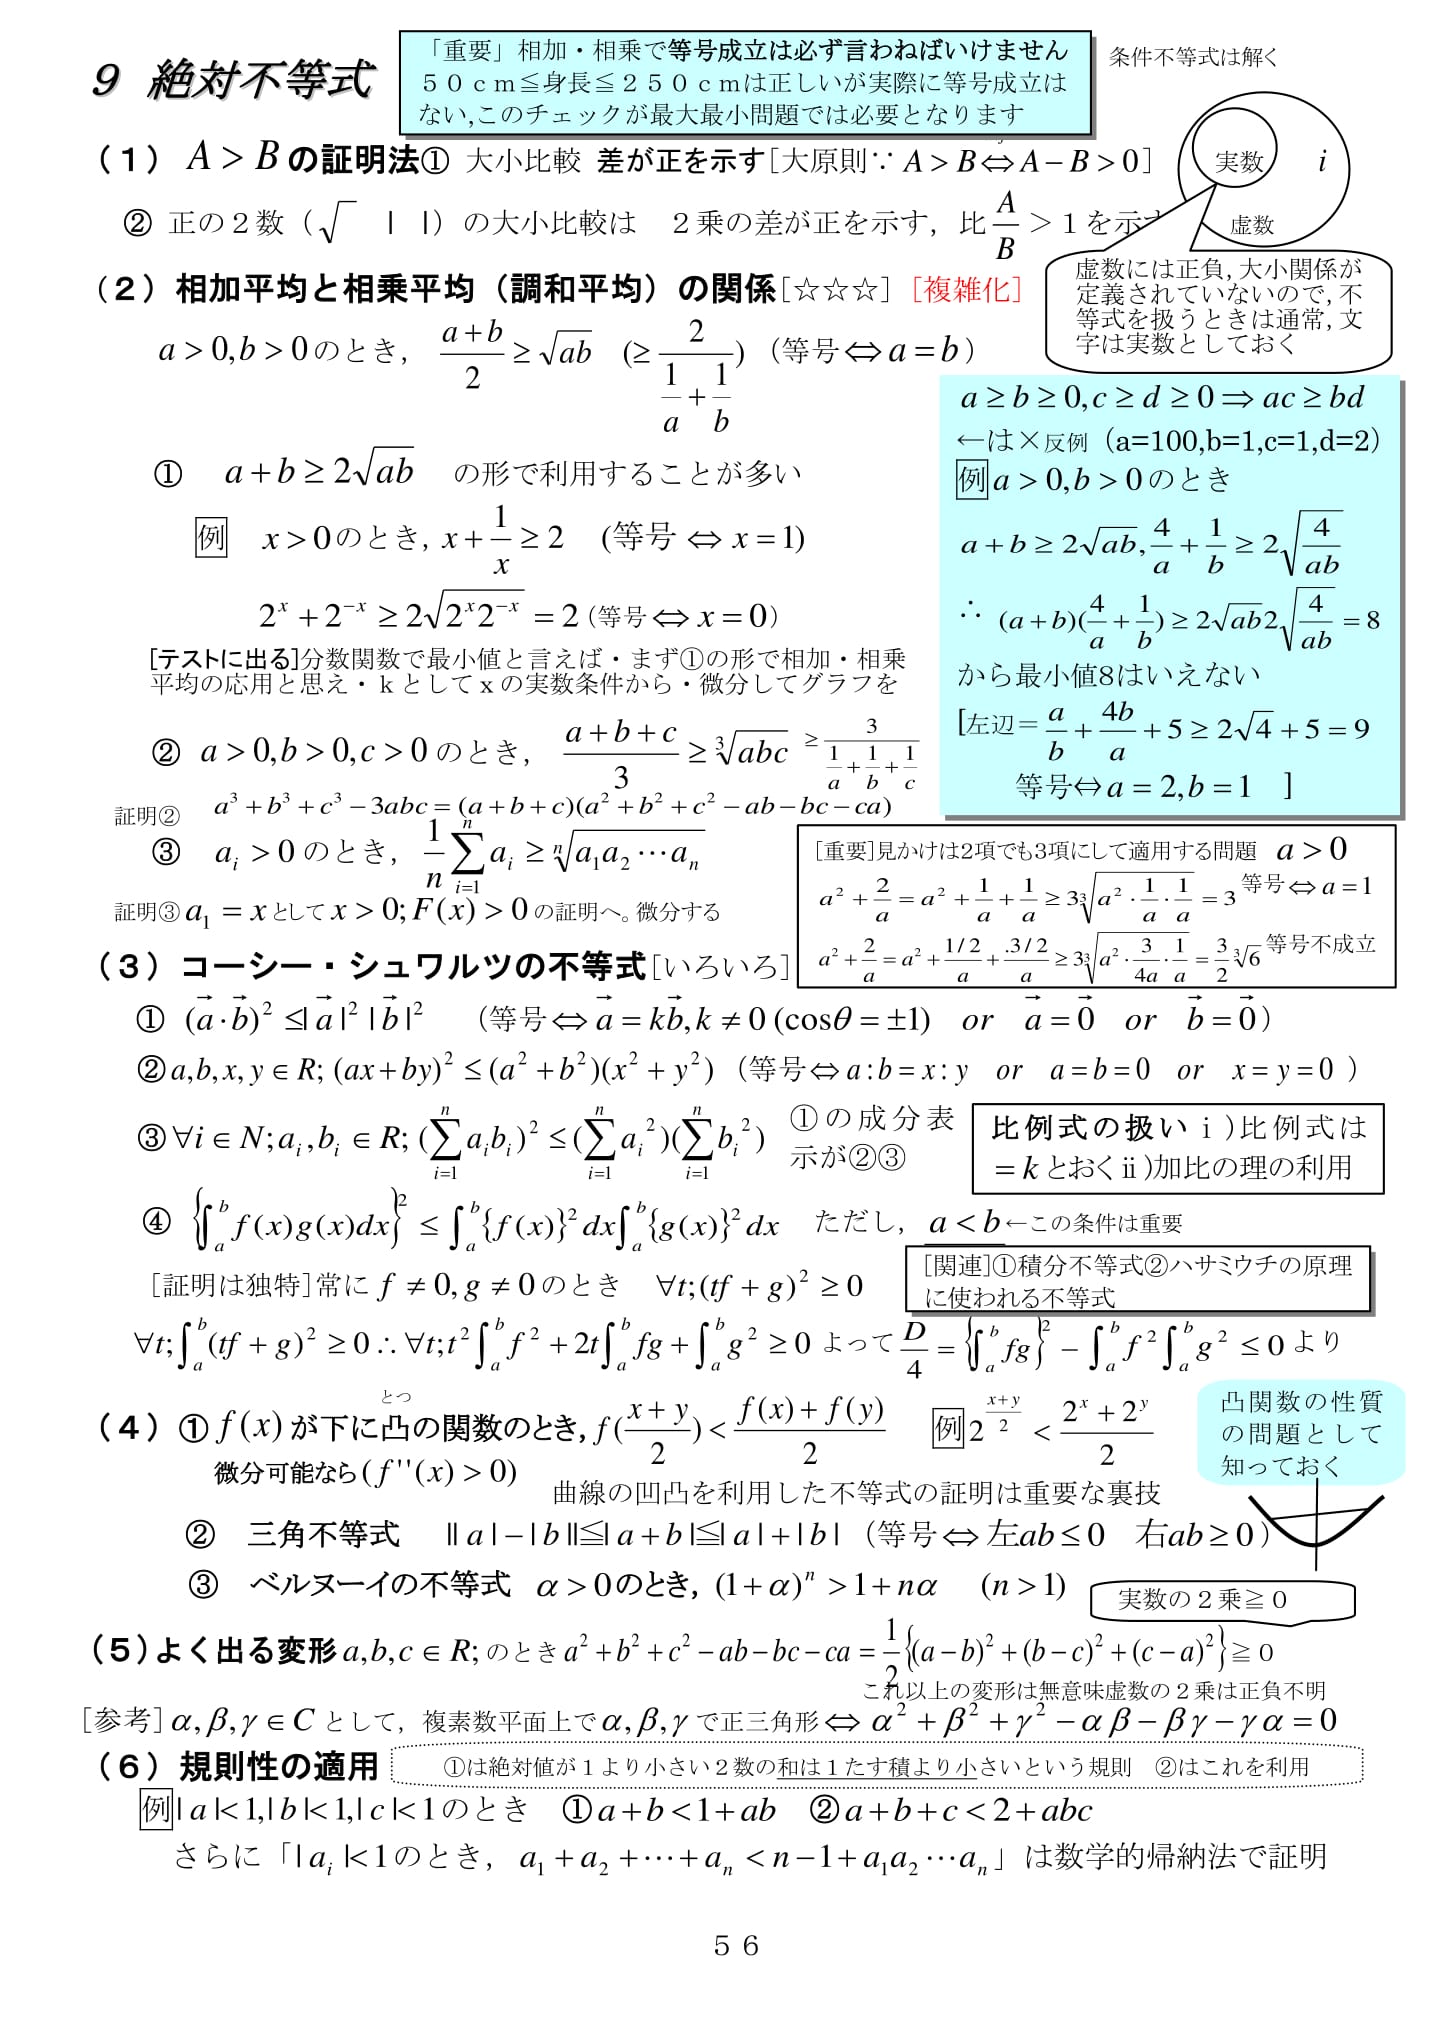 ９ 絶対不等式
「重要」相加・相乗で等号成立は必ず言わねばいけません
５０ｃｍ≦身長≦２５０ｃｍは正しいが実際に等号成立は
ない,このチェックが最大最小問題では必要となります
条件不等式は解く
（１） A > B の証明法① 大小比較 差が正を示す[大原則∵ A > B ⇔ A − B > 0]
実数 i
虚数
② 正の２数（√ | |）の大小比較は ２乗の差が正を示す，比 A/B > 1 を示す
虚数には正負,大小関係が
定義されていないので,不
等式を扱うときは通常,文
字は実数としておく
（２）相加平均と相乗平均（調和平均）の関係[☆☆☆] [複雑化]
a > 0, b > 0 のとき， (a+b)/2 ≥ √ab (≥ 2/(1/a + 1/b)) （等号⇔ a = b）
① a + b ≥ 2√ab の形で利用することが多い
例 x > 0 のとき, x + 1/x ≥ 2 (等号 ⇔ x = 1)
2^x + 2^−x ≥ 2√(2^x 2^−x) = 2 (等号⇔ x = 0)
[テストに出る]分数関数で最小値と言えば・まず①の形で相加・相乗
平均の応用と思え・ｋとしてｘの実数条件から・微分してグラフを
② a > 0, b > 0, c > 0 のとき， (a+b+c)/3 ≥ ∛abc ≥ 3/(1/a + 1/b + 1/c)
証明② a³ + b³ + c³ − 3abc = (a + b + c)(a² + b² + c² − ab − bc − ca)
③ a_i > 0 のとき， 1/n Σ_{i=1}^{n} a_i ≥ ⁿ√(a₁a₂⋯a_n)
証明③ a₁ = x として x > 0; F(x) > 0 の証明へ。微分する
a ≥ b ≥ 0, c ≥ d ≥ 0 ⇒ ac ≥ bd
←は×反例（a=100,b=1,c=1,d=2）
例 a > 0, b > 0 のとき
a + b ≥ 2√ab, 4/a + 1/b ≥ 2√(4/ab)
∴ (a + b)(4/a + 1/b) ≥ 2√ab 2√(4/ab) = 8
から最小値8はいえない
[左辺＝ a/b + 4b/a + 5 ≥ 2√4 + 5 = 9
等号⇔ a = 2, b = 1 ]
[重要]見かけは2項でも3項にして適用する問題 a > 0
a² + 2/a = a² + 1/a + 1/a ≥ 3∛(a² · 1/a · 1/a) = 3 等号⇔ a = 1
a² + 2/a = a² + (1/2)/a + (.3/2)/a ≥ 3∛(a² · 3/4a · 1/a) = 3/2 ∛6 等号不成立
（３）コーシー・シュワルツの不等式[いろいろ]
① (a⃗ · b⃗)² ≤ |a⃗|² |b⃗|² （等号⇔ a⃗ = kb⃗, k ≠ 0 (cosθ = ±1) or a⃗ = 0⃗ or b⃗ = 0⃗）
② a, b, x, y ∈ R; (ax + by)² ≤ (a² + b²)(x² + y²) （等号⇔ a : b = x : y or a = b = 0 or x = y = 0 ）
③ ∀i ∈ N; a_i, b_i ∈ R; (Σ_{i=1}^{n} a_i b_i)² ≤ (Σ_{i=1}^{n} a_i²)(Σ_{i=1}^{n} b_i²)
①の成分表
示が②③
比例式の扱いｉ)比例式は
= k とおくⅱ)加比の理の利用
④ {∫_a^b f(x)g(x)dx}² ≤ ∫_a^b {f(x)}² dx ∫_a^b {g(x)}² dx ただし， a < b ←この条件は重要
[証明は独特]常に f ≠ 0, g ≠ 0 のとき ∀t; (tf + g)² ≥ 0
[関連]①積分不等式②ハサミウチの原理
に使われる不等式
∀t; ∫_a^b (tf + g)² ≥ 0 ∴ ∀t; t² ∫_a^b f² + 2t ∫_a^b fg + ∫_a^b g² ≥ 0 よって D/4 = {∫_a^b fg}² − ∫_a^b f² ∫_a^b g² ≤ 0 より
とつ
（４）① f(x) が下に凸の関数のとき, f((x+y)/2) < (f(x) + f(y))/2 例 2^((x+y)/2) < (2^x + 2^y)/2
微分可能なら( f ''(x) > 0)
凸関数の性質
の問題として
知っておく
曲線の凹凸を利用した不等式の証明は重要な裏技
② 三角不等式 ||a| − |b|| ≦ |a + b| ≦ |a| + |b| （等号⇔ 左ab ≤ 0 右ab ≥ 0）
③ ベルヌーイの不等式 α > 0 のとき, (1 + α)^n > 1 + nα (n > 1)
実数の２乗≧０
（５）よく出る変形 a, b, c ∈ R; のとき a² + b² + c² − ab − bc − ca = 1/2 {(a − b)² + (b − c)² + (c − a)²} ≧ 0
これ以上の変形は無意味虚数の２乗は正負不明
[参考] α, β, γ ∈ C として，複素数平面上で α, β, γ で正三角形⇔ α² + β² + γ² − αβ − βγ − γα = 0
（６）規則性の適用 ①は絶対値が１より小さい２数の和は１たす積より小さいという規則 ②はこれを利用
例 |a| < 1, |b| < 1, |c| < 1 のとき ① a + b < 1 + ab ② a + b + c < 2 + abc
さらに「|a_i| < 1 のとき， a₁ + a₂ + ⋯ + a_n < n − 1 + a₁a₂⋯a_n」は数学的帰納法で証明
５６